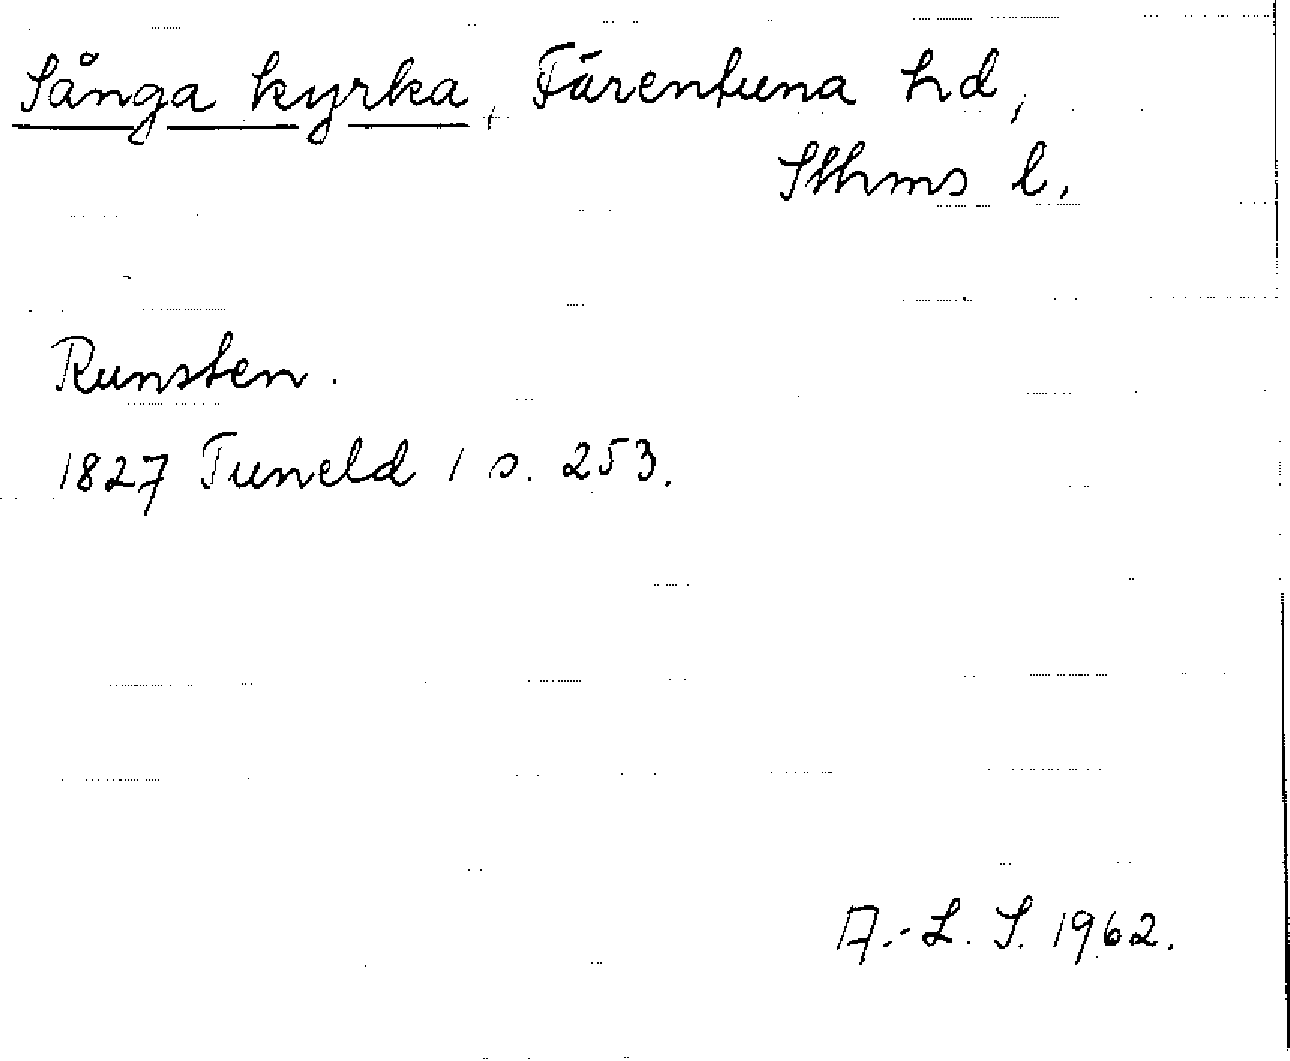 Sånga kyrka, Färentuna hd,
Sthms l.
Runsten.
1827 Tuneld 1 s. 253.
A.-L. S. 1962.